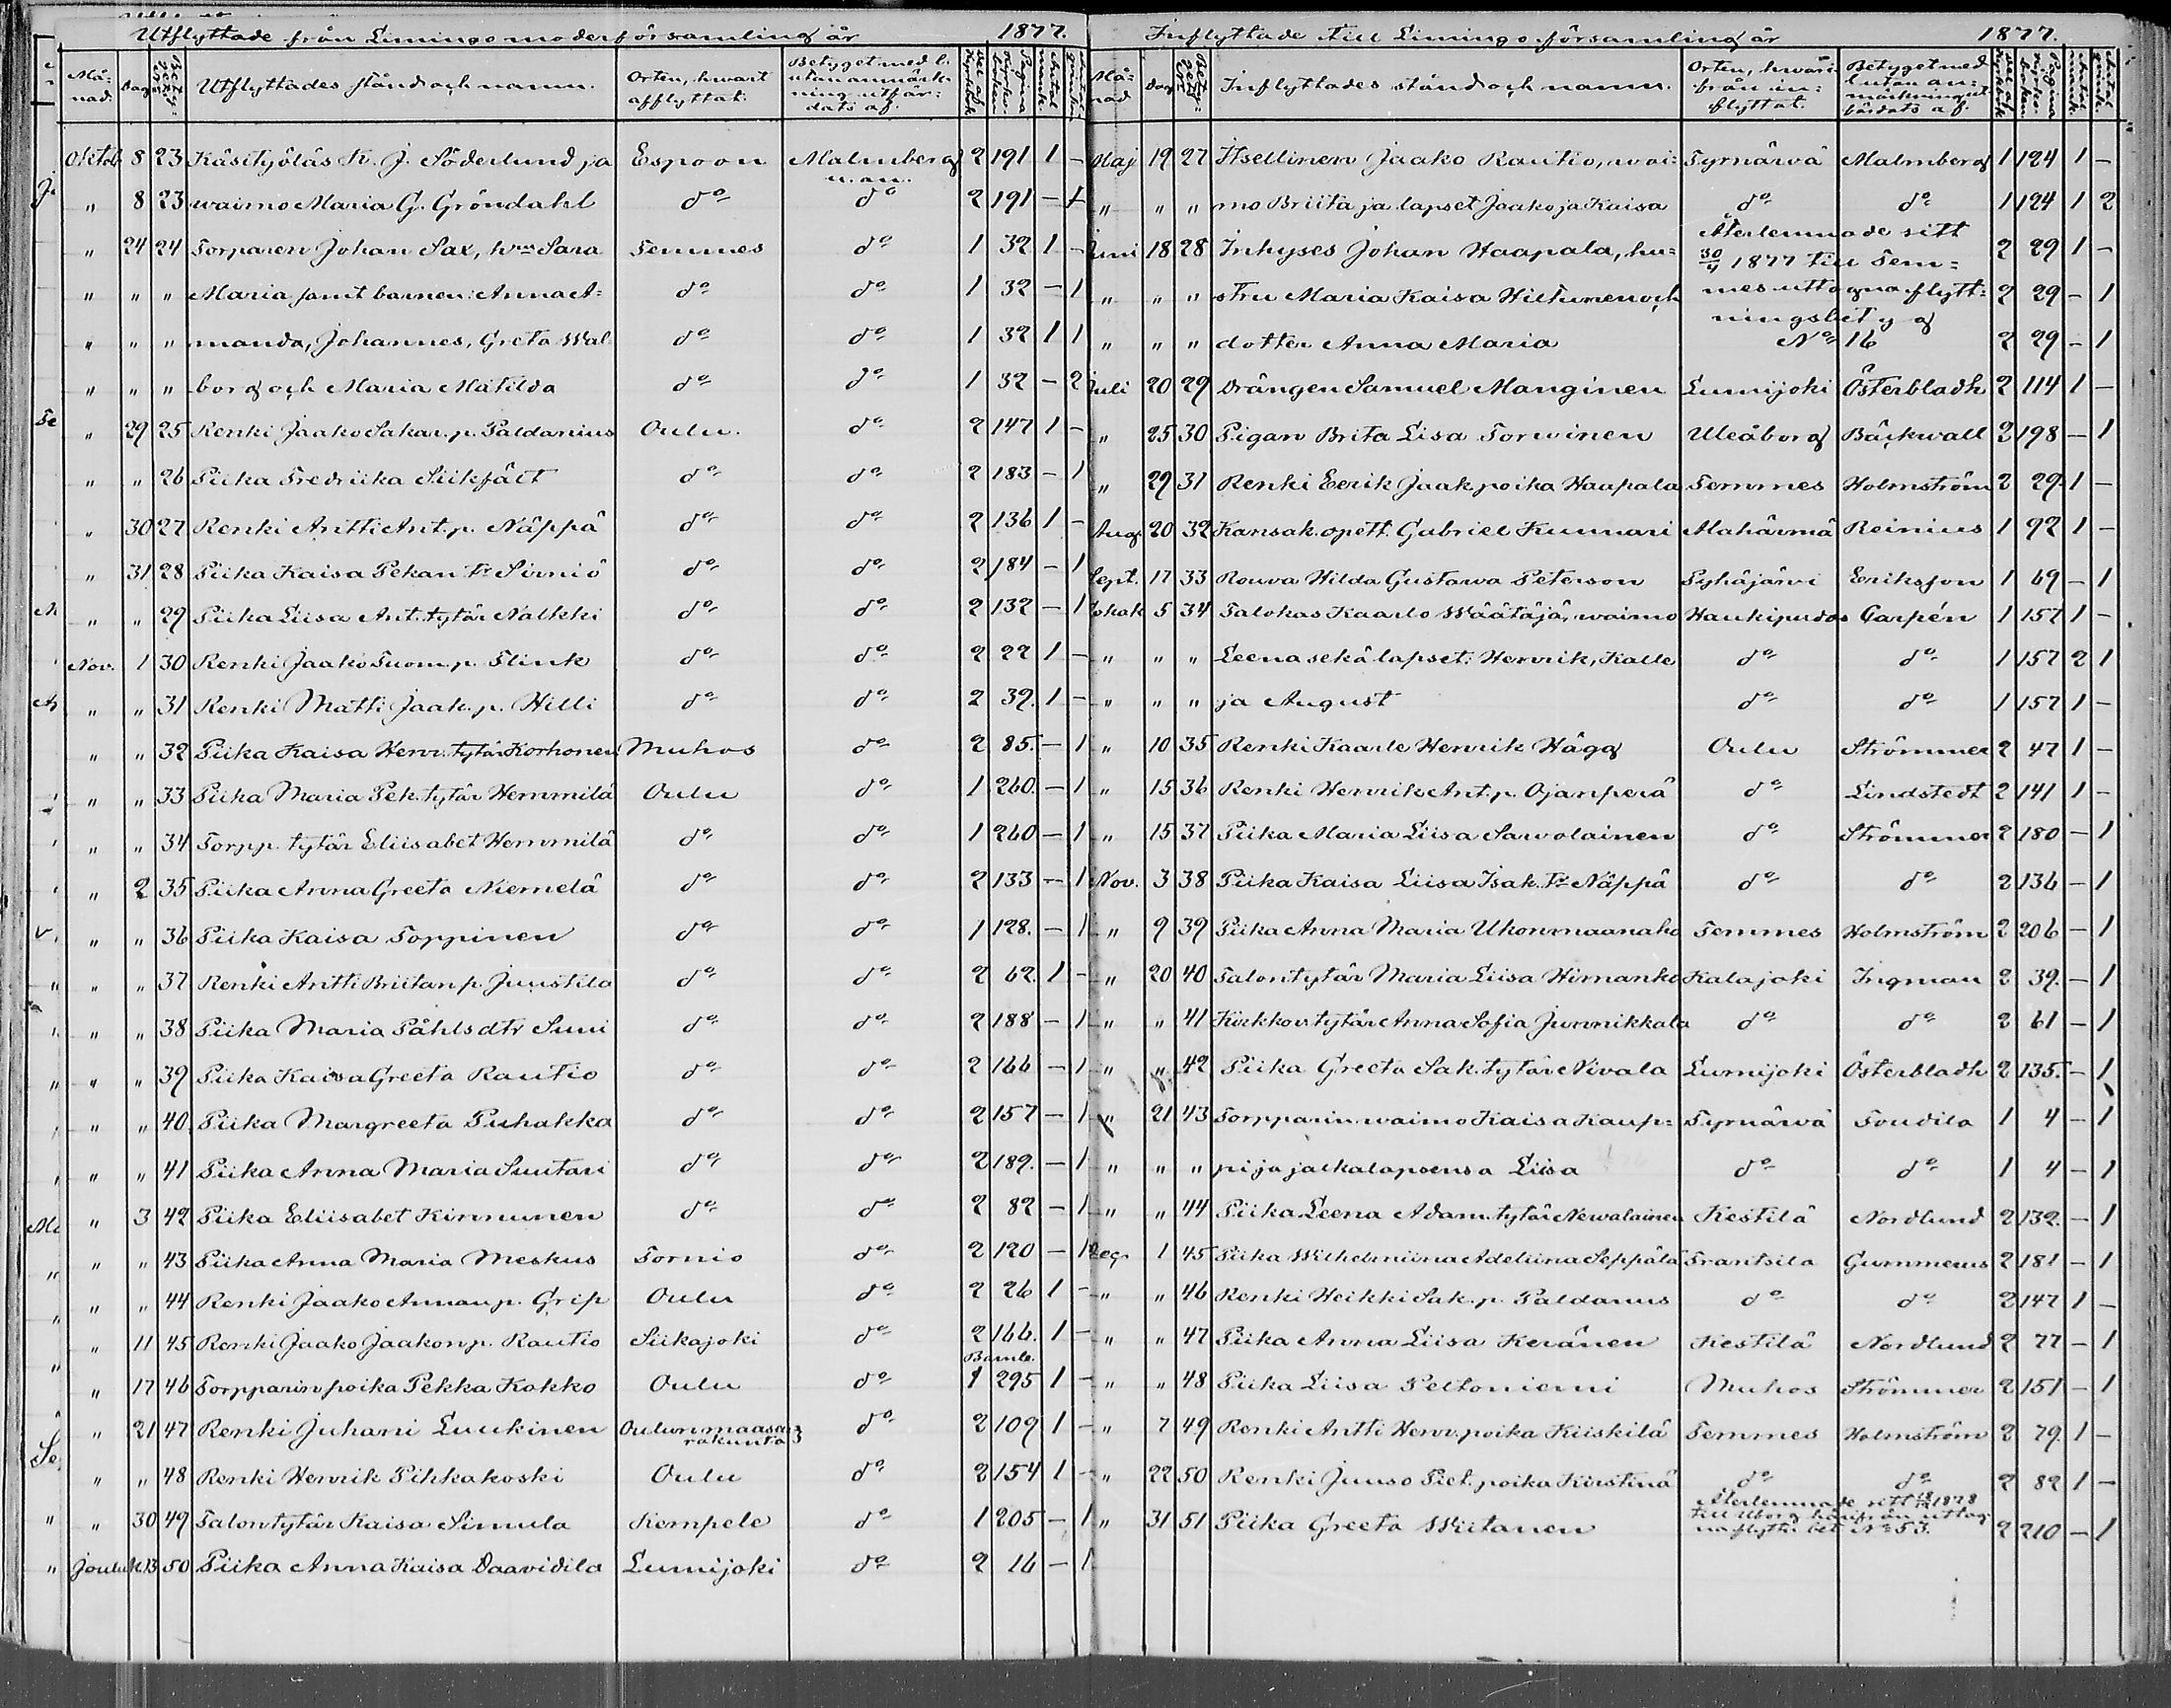 Utflyttade från Limingo moderförsamling år 1877.
Må-nad. Dag Utflyttades stånd och namn. Orten, hwart afflyttat. Betyget med l. utan anmärk-ning utfär-dats af.
Oktob 8 23 Käsityöläs K. J. Söderlund ja Espoon Malmberg u. an. 2 191 1 -
" 8 23 waimo Maria G. Gröndahl do do 2 191 - 1
" 24 24 Torparen Johan Sax, hru Sara Temmes do 1 32 1 -
" " " Maria samt barnen: Anna A= do do 1 32 - 1
" " " manda, Johannes, Greta Wal do do 1 32 1 1
" " " borg och Maria Matilda do do 1 32 - 2
" 29 25 Renki Jaako Sakar. p. Paldanius Oulu. do 2 147 1 -
" " 26 Piika Fredriika Siikfält do do 2 183 - 1
" 30 27 Renki Antti Ant. p. Näppä do do 2 136 1 -
" 31 28 Piika Kaisa Pekan tr Sirniö do do 2 184 - 1
" " 29 Piika Liisa Ant. tytär Nalkki do do 2 132 - 1
Nov. 1 30 Renki Jaako Tuom. p. Flink do do 2 22 1 -
" " 31 Renki Matti Jaak. p. Hilli do do 2 32. 1 -
" " 32 Piika Kaisa Henr. tytär Korhonen Muhos do 2 85. - 1
" " 33 Piika Maria Pek. tytär Hemmilä Oulu do 1 260. - 1
" " 34 Torpp. tytär Eliisabet Hemmilä do do 1 260 - 1
" 2 35 Piika Anna Greeta Niemelä do do 2 133 - 1
" " 36 Piika Kaisa Toppinen do do 1 128. - 1
" " 37 Renki Antti Briitan p. Juustila do do 2 62. 1 -
" " 38 Piika Maria Påhlsdtr Suni do do 2 188 - 1
" " 39 Piika Kaisa Greeta Rautio do do 2 166 - 1
" " 40. Piika Margreeta Puhakka do do 2 157 - 1
" " 41 Piika Anna Maria Suutari do do 2 189. - 1
" 3 42 Piika Eliisabet Kinnunen do do 2 82 - 1
" " 43 Piika Anna Maria Meskus Tornio do 2 120 - 1
" " 44 Renki Jaako Annan p. Grip Oulu do 2 26 1 -
" 11 45 Renki Jaako Jaakon p. Rautio Siikajoki do 2 166. 1 -
" 17 46 Torpparin poika Pekka Kokko Oulu do Barnb. 1 295 1 -
" 21 47 Renki Juhani Luukinen Oulun maaseu rakunta do 2 109 1 -
" " 48 Renki Henrik Pihkakoski Oulu do 2 154 1 -
" 30 49 Talontytär Kaisa Simula Kempele do 1 205 - 1
Jouluk. 13 50 Piika Anna Kaisa Daavidila Lumijoki do 2 16 - 1
Inflyttade till Limingo församling år 1877.
Må-nad Dag Inflyttades stånd och namn. Orten, hwari-från in-flyttat. Betyget med l. utan an-märkning ut-färdats af.
Maj 19 27 Itsellinen Jaako Rautio, wai= Tyrnäwä Malmberg 1 124 1 -
" " " mo Briita ja lapset Jaako ja Kaisa do do 1 124 1 2
Juni 18 28 Inhyses Johan Haapala, hu= Återlemnade sitt 30/9 1877 till Tem= 2 29 1 -
" " " stru Maria Kaisa Hiltunen och mes uttagna flytt= 2 29 - 1
" " " dotter Anna Maria ningsbetyg No 16 2 29 - 1
Juli 20 29 Drängen Samuel Manginen Lumijoki Österbladh 2 114 1 -
" 25 30 Pigan Brita Lisa Torwinen Uleåborg Bäckwall 2 198 - 1
" 29 31 Renki Eerik Jaak. poika Haapala Temmes Holmström 2 29. 1 -
Aug. 20 32 Kansak. opett. Gabriel Kunnari Alahärmä Reinius 1 92 1 -
Sept. 17 33 Rouva Hilda Gustawa Peterson Pyhäjärvi Eriksson 1 69 - 1
Lokak 5 34 Talokas Kaarlo Wäätäjä, waimo Haukipudas Carpén 1 157 1 -
" " " Leena sekä lapset: Henrik, Kalle do do 1 157 2 1
" " " ja August do do 1 157 1 -
" 10 35 Renki Kaarle Henrik Hägg Oulu Strömmer 2 47 1 -
" 15 36 Renki Henrik Ant. p. Ojanperä do Lindstedt 2 141 1 -
" 15 37 Piika Maria Liisa Sawolainen do Strömmer 2 180 - 1
Nov. 3 38 Piika Kaisa Liisa Isak. tr Näppä do do 2 136 - 1
" 9 39 Piika Anna Maria Ukonmaanaho Temmes Holmström 2 206 - 1
" 20 40 Talontytär Maria Liisa Himanko Kalajoki Ingman 2 39. - 1
" " 41 Kirkkov. tytär Anna Sofia Junnikkala do do 2 61 - 1
" " 42 Piika Greeta Sak. tytär Nivala Lumijoki Österbladh 2 135. - 1
" 21 43 Torpparin waimo Kaisa Kaup= Tyrnäwä Toudila 1 4 - 1
" " " pi ja jalkalapsensa Liisa do do 1 4 - 1
" " 44 Piika Leena Adam. tytär Newalainen Kestilä Nordlund 2 132. - 1
Dec. 1 45 Piika Wilhelmiina Adeliina Seppälä Frantsila Gummerus 2 181 - 1
" " 46 Renki Heikki Sak. p. Paldanus do do 2 147 1 -
" " 47 Piika Anna Liisa Keränen Kestilä Nordlund 2 77 - 1
" " 48 Piika Liisa Peltoniemi Muhos Strömmer 2 151 - 1
" 7 49 Renki Antti Henr. poika Kiiskilä Temmes Holmström 2 79. 1 -
" 22 50 Renki Juuso Piet. poika Kirstinä do do 2 82 1 -
" 31 51 Piika Greeta Wiitanen Återlemnade sitt 1878 till Uborg härifrån uttag na flyttn. bet. No 53. 2 210 - 1